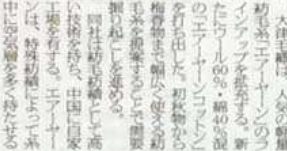 大津毛織は、人気の軽量
紡毛糸「エアーヤーン」のラ
インアップを拡充する。新
たにウール60％・綿40％混
の「エアーヤーンコットン」
を打ち出した。初秋物から
梅春物まで幅広く使える紡
毛糸を提案することで需要
掘り起こしを進める。
同社は紡毛紡績として高
い技術を持ち、中国に自家
工場を有する。エアーヤー
ンは、特殊紡績によって糸
中に空気層を多く持たせる